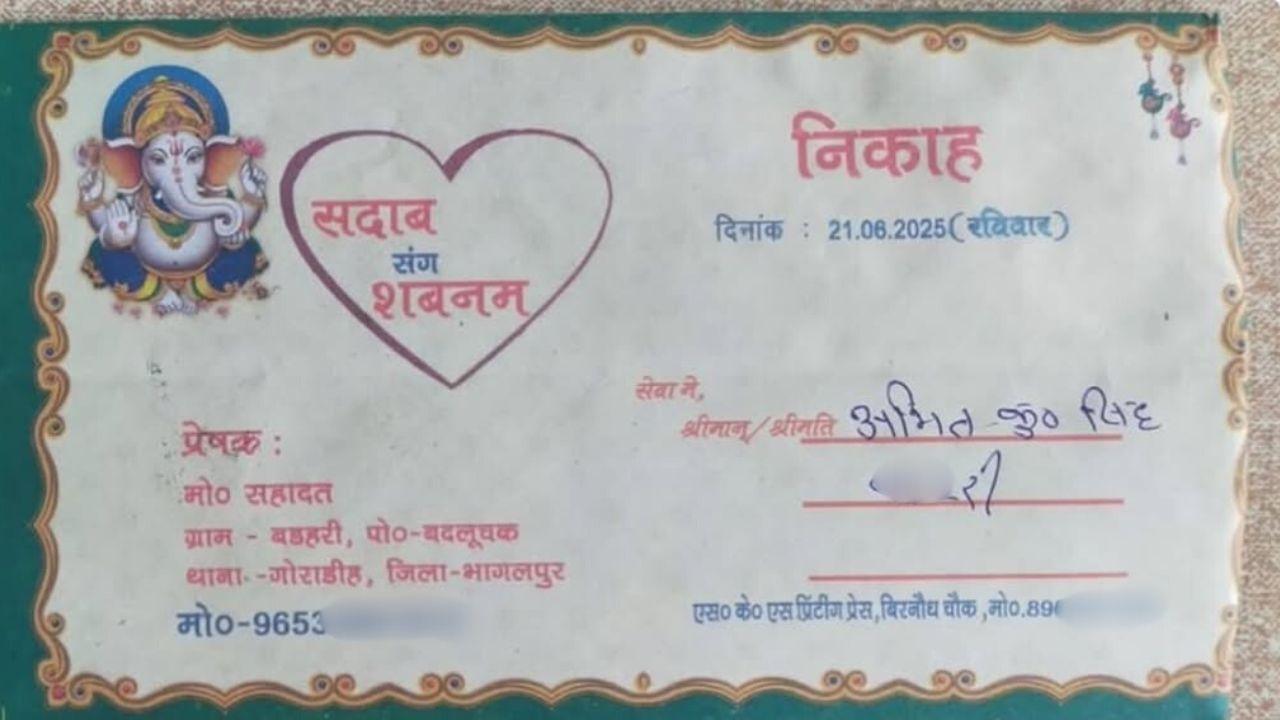 निकाह
दिनांक : 21.06.2025(रविवार)
सदाब
संग
शबनम
सेवा मे,
श्रीमान्/श्रीमति अमित कु० सिंह
री
प्रेषक :
मो० सहादत
ग्राम - बडहरी, पो०-बदलूचक
थाना.-गोराडीह, जिला-भागलपुर
मो०-9653
एस० के० एस प्रिंटींग प्रेस,बिरनौध चौक ,मो०.896